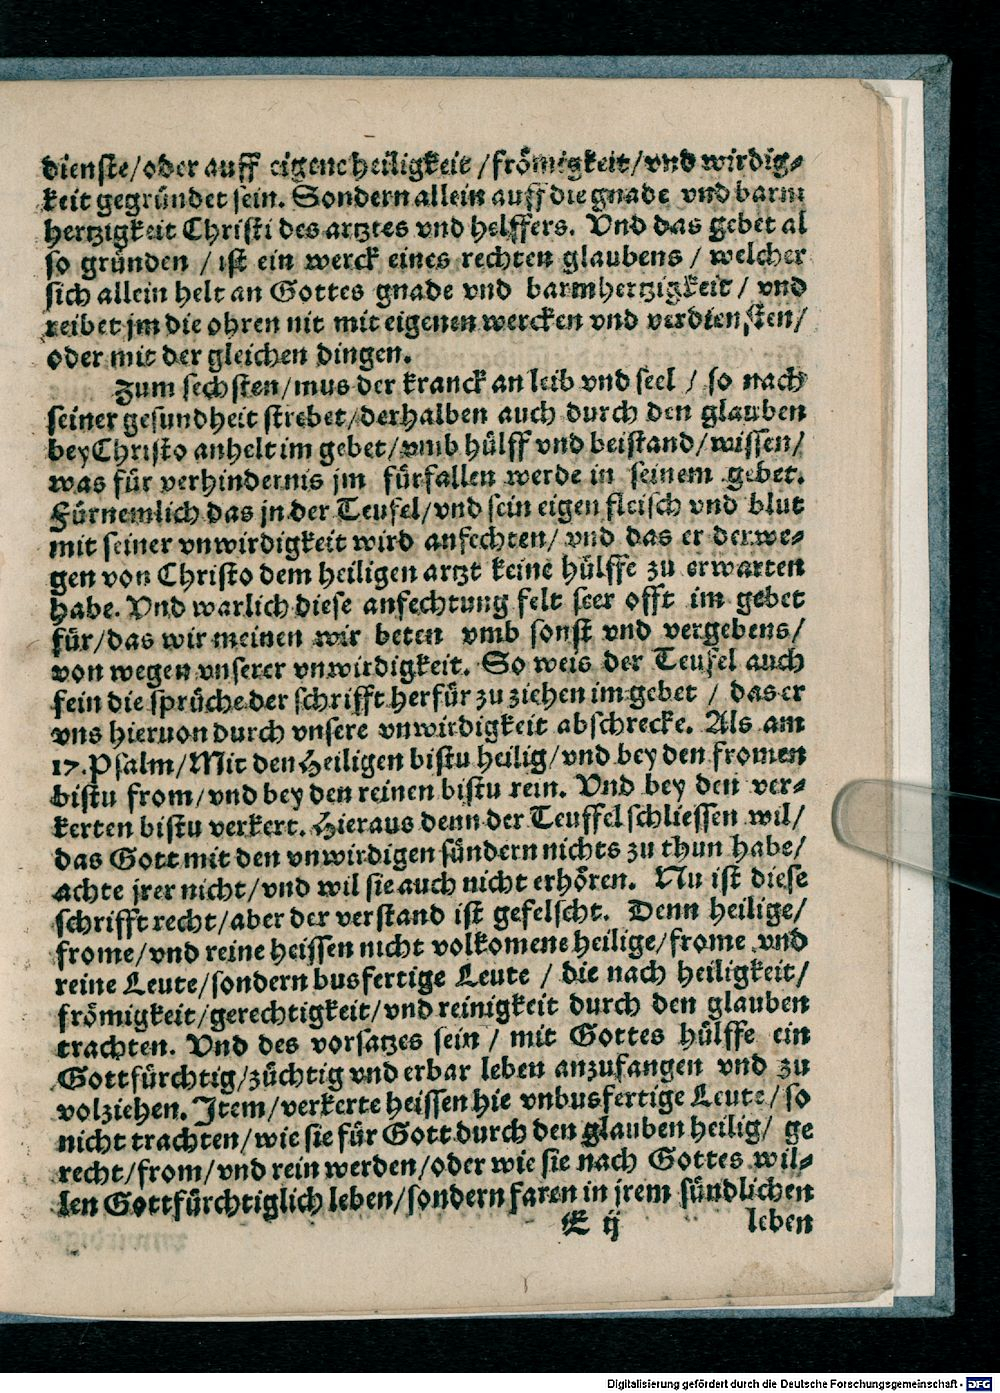 dienste/oder auff eigene heiligkeit /frömigkeit/vnd wirdig-
keit gegründet sein. Sondern allein auff die gnade vnd barm
hertzigkeit Christi des artztes vnd helffers. Vnd das gebet al
so gründen / ist ein werck eines rechten glaubens / welcher
sich allein helt an Gottes gnade vnd barmhertzigkeit / vnd
reibet jm die ohren nit mit eigenen wercken vnd verdiensten/
oder mit der gleichen dingen.
Zum sechsten/mus der kranck an leib vnd seel / so nach
seiner gesundheit strebet/derhalben auch durch den glauben
bey Christo anhelt im gebet/vmb hülff vnd beistand/wissen/
was für verhindernis jm fürfallen werde in seinem gebet.
Fürnemlich das jn der Teufel/vnd sein eigen fleisch vnd blut
mit seiner vnwirdigkeit wird anfechten/ vnd das er derwe-
gen von Christo dem heiligen artzt keine hülffe zu erwarten
habe. Vnd warlich diese anfechtung felt seer offt im gebet
für/das wir meinen wir beten vmb sonst vnd vergebens/
von wegen vnserer vnwirdigkeit. So weis der Teufel auch
fein die sprüche der schrifft herfür zu ziehen im gebet / das er
vns hieruon durch vnsere vnwirdigkeit abschrecke. Als am
17.Psalm/Mit den Heiligen bistu heilig/vnd bey den fromen
bistu from/vnd bey den reinen bistu rein. Vnd bey den ver-
kerten bistu verkert. Hieraus denn der Teuffel schliessen wil/
das Gott mit den vnwirdigen sündern nichts zu thun habe/
achte jrer nicht/vnd wil sie auch nicht erhören. Nu ist diese
schrifft recht/aber der verstand ist gefelscht. Denn heilige/
frome/vnd reine heissen nicht volkomene heilige/frome vnd
reine Leute/sondern busfertige Leute / die nach heiligkeit/
frömigkeit/gerechtigkeit/vnd reinigkeit durch den glauben
trachten. Vnd des vorsatzes sein / mit Gottes hülffe ein
Gottfürchtig/züchtig vnd erbar leben anzufangen vnd zu
volziehen. Item/verkerte heissen hie vnbusfertige Leute/so
nicht trachten/wie sie für Gott durch den glauben heilig/ ge
recht/from/vnd rein werden/oder wie sie nach Gottes wil-
len Gottfürchtiglich leben/sondern faren in jrem sündlichen
E ij leben
Digitalisierung gefördert durch die Deutsche Forschungsgemeinschaft - DFG